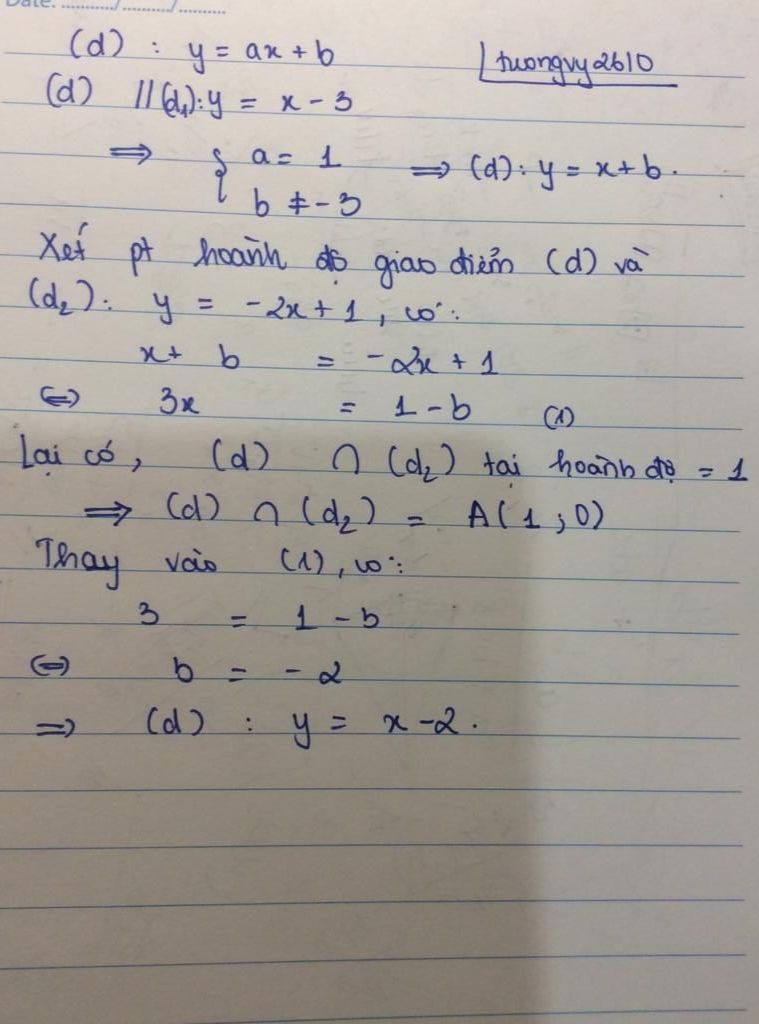 Date: ........../........../..........
(d) : y = ax + b
tuongvy2610
(d) // (d₁): y = x - 3
⇒ { a = 1
b ≠ -3
⇒ (d): y = x + b.
Xét pt hoành độ giao điểm (d) và
(d₂): y = -2x + 1, có:
x + b = -2x + 1
⇔ 3x = 1 - b (1)
Lại có, (d) ∩ (d₂) tại hoành độ = 1
⇒ (d) ∩ (d₂) = A(1;0)
Thay vào (1), có:
3 = 1 - b
⇔ b = -2
⇒ (d) : y = x - 2.